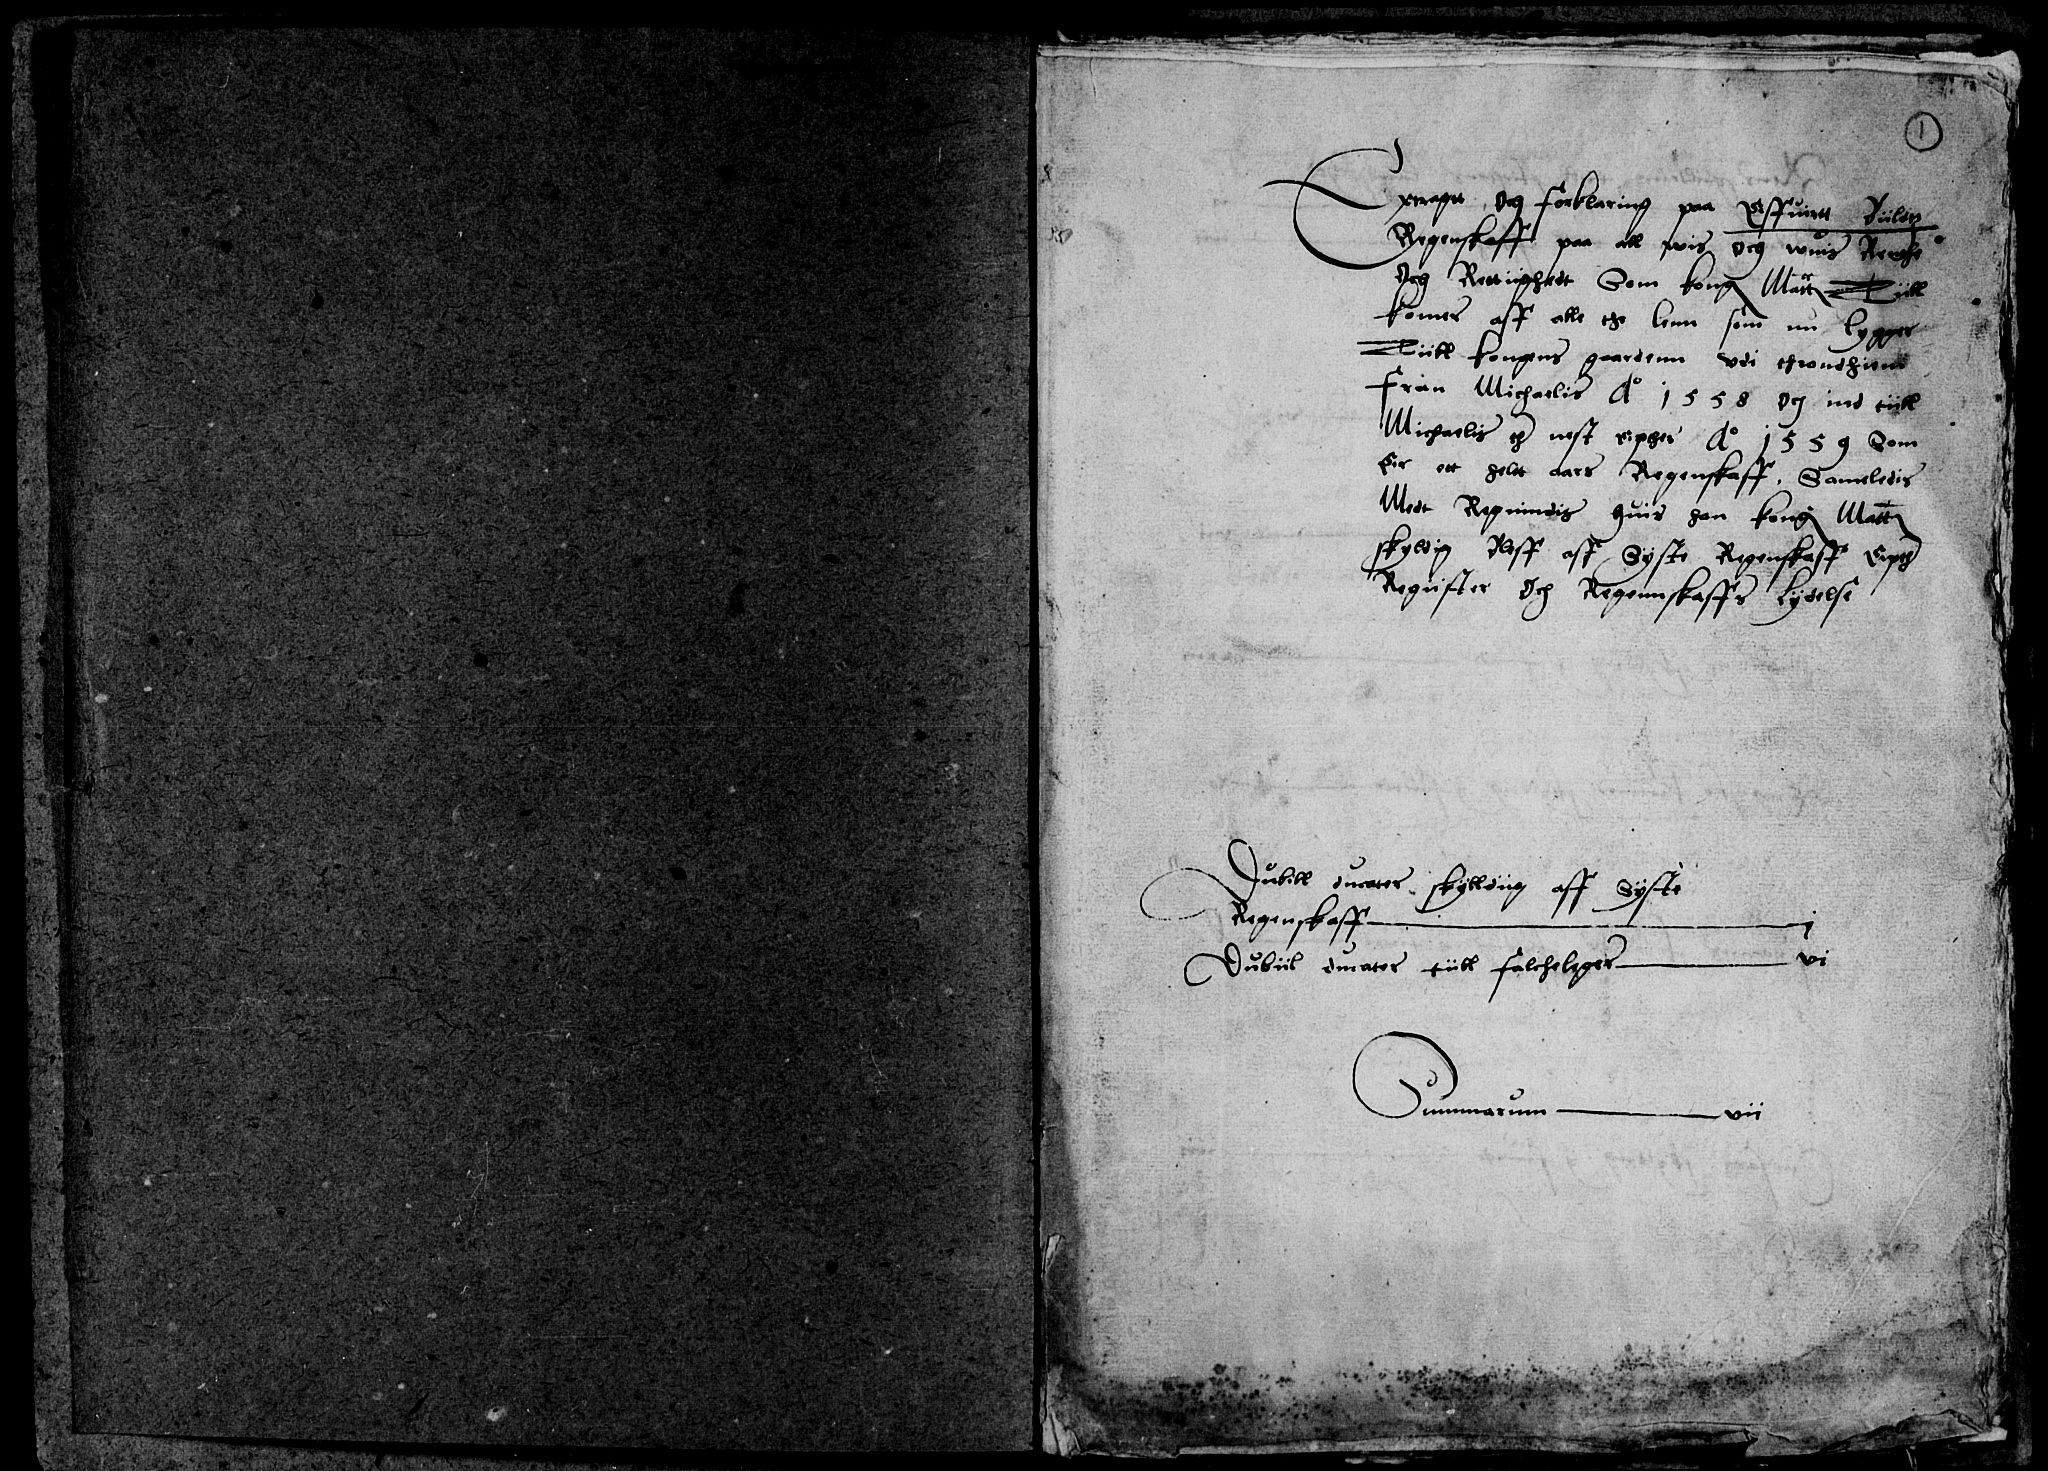 1
Extragtt Och forklaring paa Effuertt Bilds
Regenskaff paa all wis Och wuis Renthe
Och Rettiighedt Som kong Matt Tiill
komer aff alle the lenn som nu lygger
Tiill kongens gaardenn vdi throndhiem
Fran Michaelis Ao 1558 Och ind tiill
Michaelis ther nest epther Ao 1559 Som
Er ett helt aars Regenskaff, Sameledis
Medt Reguindis huis han kong Matt
skyldig bleff aff Syste Regenskaff Epther
Regiister Och Regennskaffs lydelse
Dubill ducater skylldiig aff Syste
Regenskaff j
Dubiil ducater tiill falcheleger vi
Summarum vii